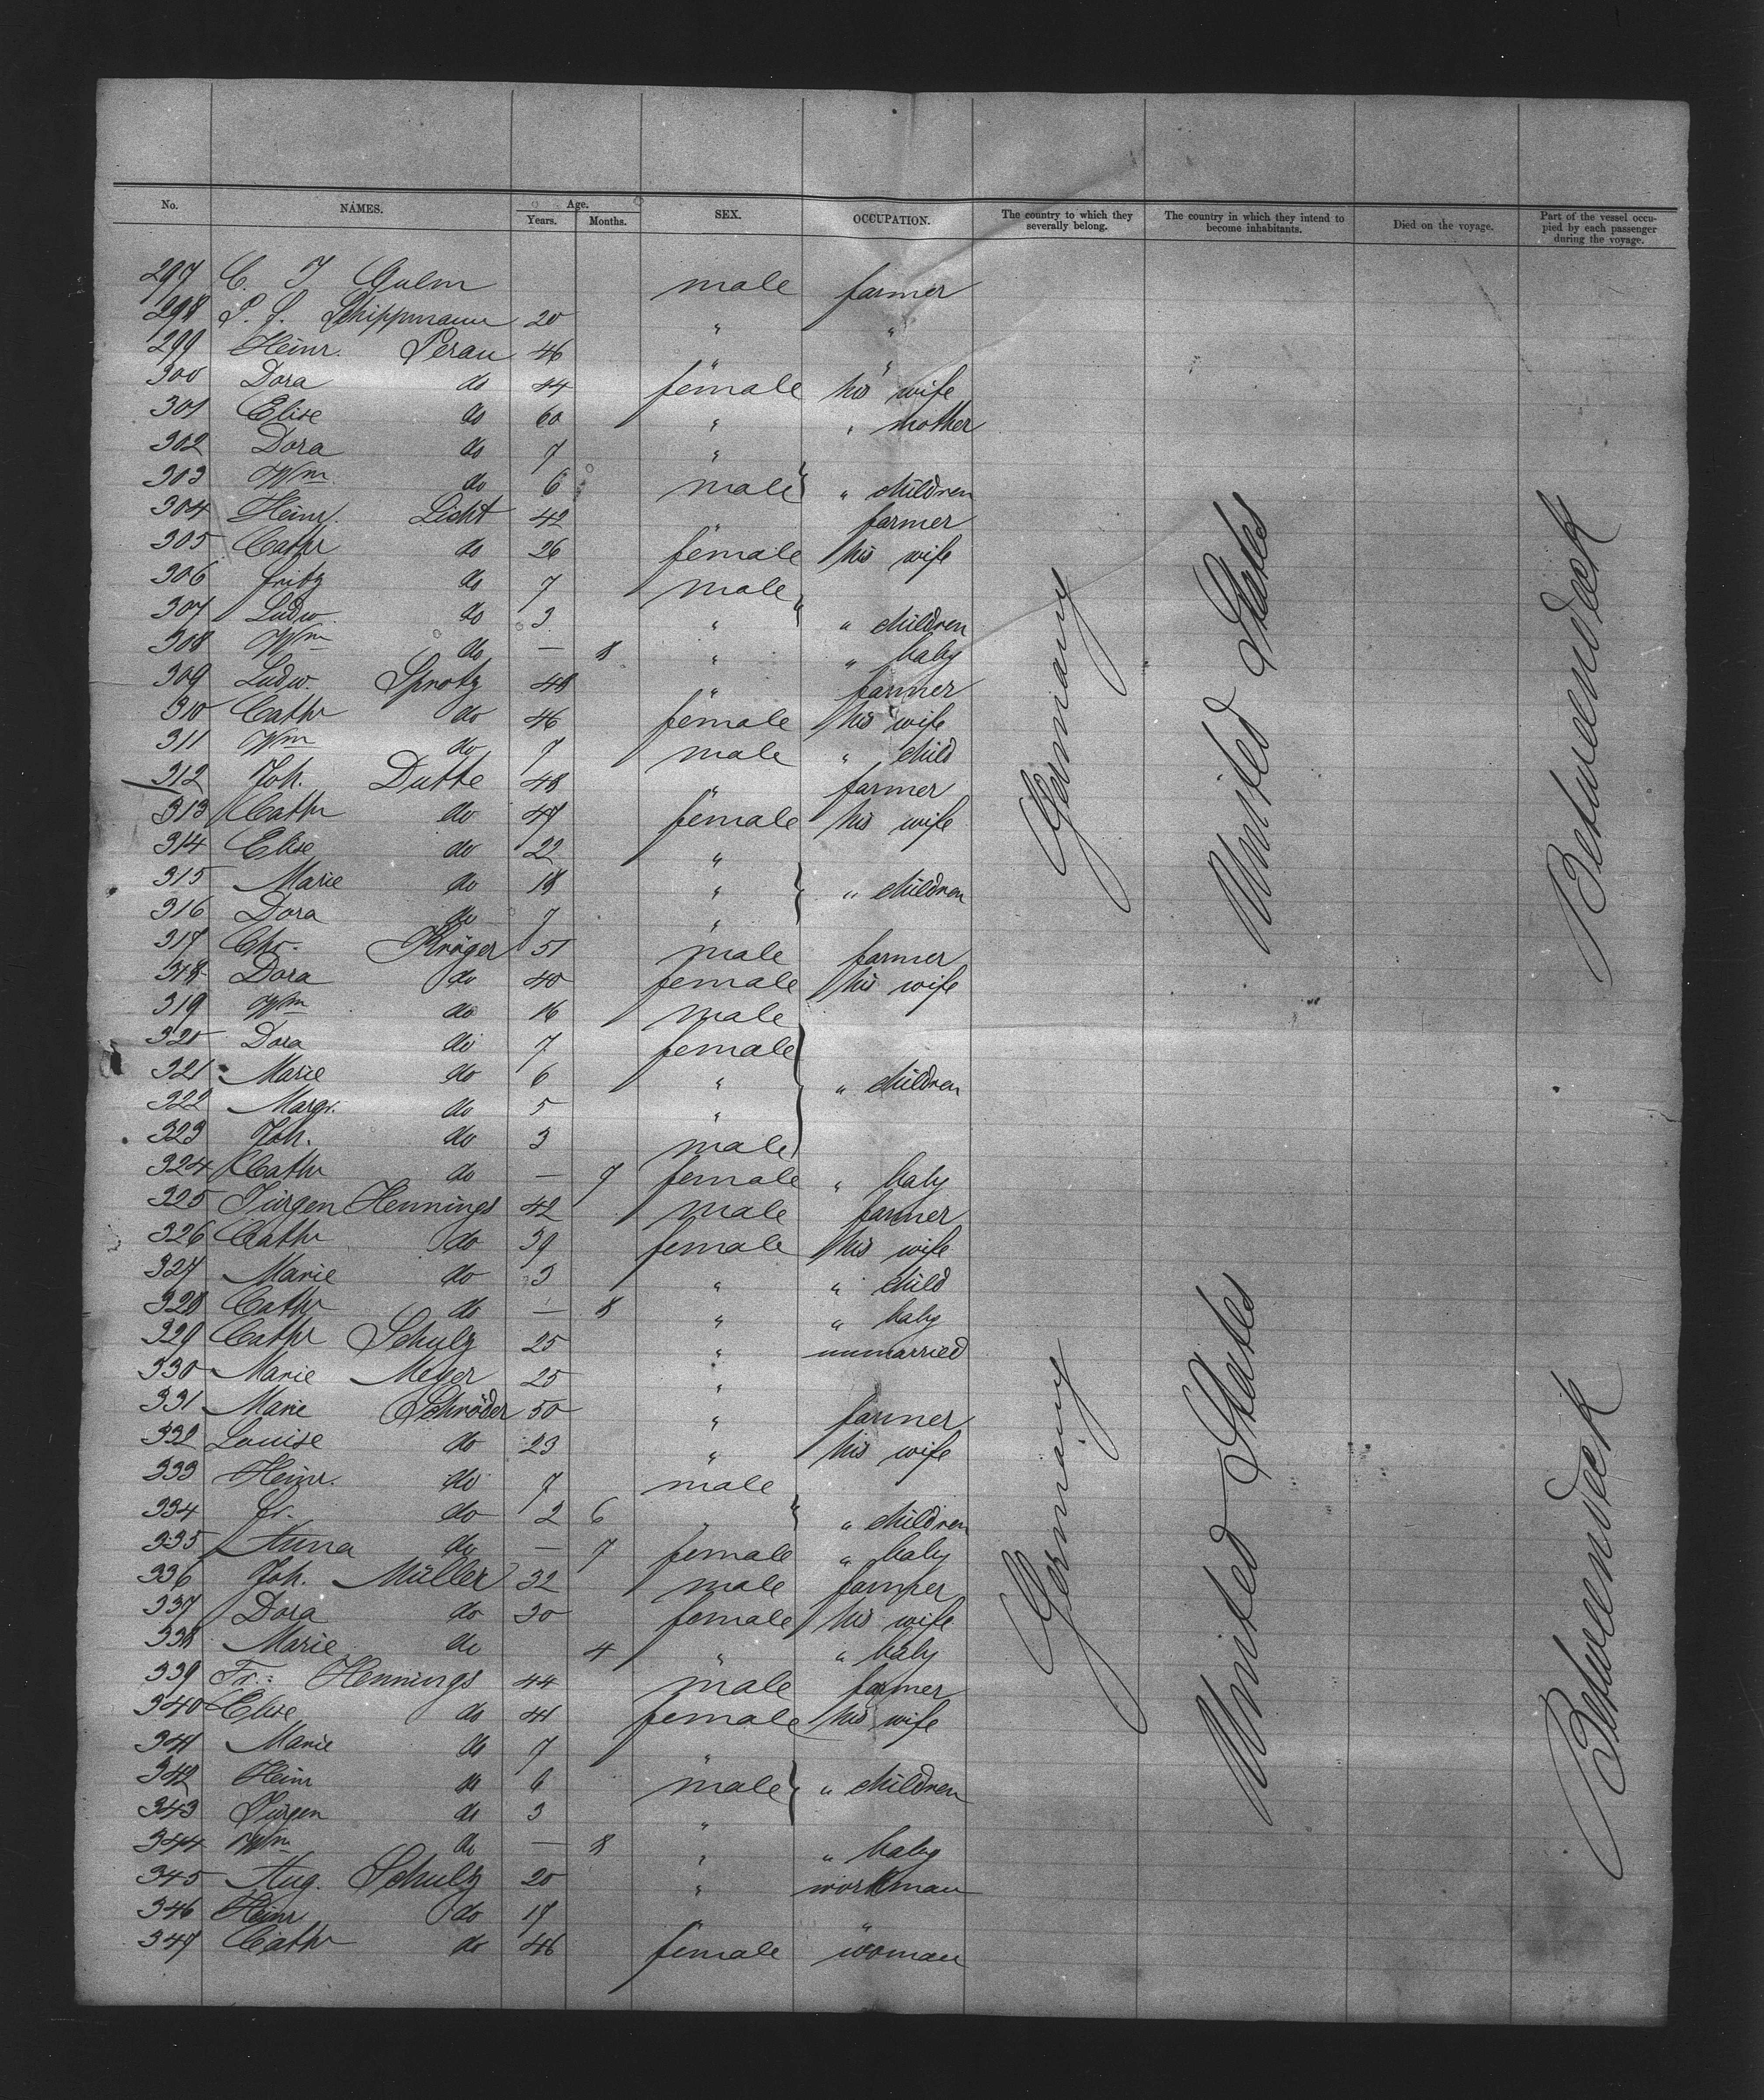 No. NAMES. Age. Years. Months. SEX. OCCUPATION. The country to which they severally belong. The country in which they intend to become inhabitants. Died on the voyage. Part of the vessel occupied by each passenger during the voyage.
297 C. J male farmer
298 Schippmann 20 " "
299 Heinr. Perau 46 " "
300 Dora do 44 female his wife
301 Elise do 60 " " mother
302 Dora do 7 "
303 Wm do 6 male } " children
304 Heinr. Licht 42 " farmer
305 Cathr do 26 female his wife
306 Fritz do 7 male
307 Ludw. do 3 " } " children
308 Wm do — 8 " " baby
309 Ludw. Sprotz 48 " farmer
310 Cathr do 46 female his wife
311 Wm do 7 male " child
312 Joh. Dutte 48 " farmer
313 Cathr do 47 female his wife
314 Elise do 22 "
315 Marie do 18 " } " children
316 Dora do 7 "
317 Chr. Kröger 51 male farmer
318 Dora do 40 female his wife
319 Wm do 16 male
320 Dora do 7 female
321 Marie do 6 " } " children
322 Margr. do 5 "
323 Joh. do 3 male
324 Cathr do — 7 female " baby
325 Jürgen Hennings 42 male farmer
326 Cathr do 39 female his wife
327 Marie do 3 " " child
328 Cathr do — 8 " " baby
329 Cathr Schulz 25 " unmarried
330 Marie Meyer 25 "
331 Marie Schröder 50 " farmer
332 Louise do 23 " his wife
333 Heinr. do 7 male
334 Fr. do 2 6 " } " children
335 Anna do — 7 female " baby
336 Joh. Müller 32 male farmer
337 Dora do 30 female his wife
338 Marie do 4 " " baby
339 Fr. Hennings 44 male farmer
340 Elise do 41 female his wife
341 Marie do 7 "
342 Heinr do 6 male } " children
343 Jürgen do 3 "
344 Wm do — 8 " " baby
345 Aug. Schulz 20 " workman
346 Heinr do 17 " "
347 Cathr do 46 female woman
Germany
United States
Betweendeck
Germany
United States
Betweendeck